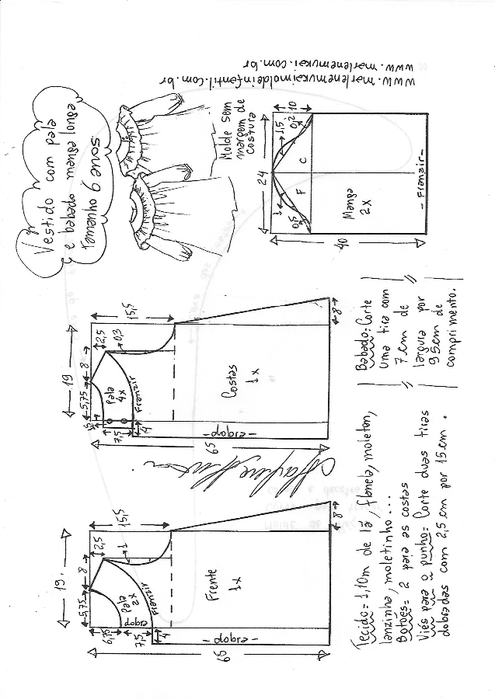 Vestido com pala
e babado manga longa
Tamanho 6 anos
Molde sem
margem de
costura
www.marlenemukaimoldeinfantil.com.br
www.marlenemukai.com.br
24
1,5
0,2
10
1
0,5
F
C
Manga
2x
-Franzir-
40
19
15,5
2,5
0,3
8
5,75
Pala
4x
Franzir
7,5
4
Costas
1x
-dobra-
65
8
Babado: Corte
uma tira com
7 cm de
largura por
95 cm de
comprimento.
19
15,5
2,5
1
8
5,75
Pala
2x
Franzir
dobra
7,5
4
Frente
1x
-dobra-
65
8
Tecido = 1,10m de lã, flanela, moleton,
lanzinha, moletinho...
Botões = 2 para as costas
Viés para o punho: Corte duas tiras
dobradas com 2,5 cm por 15 cm.